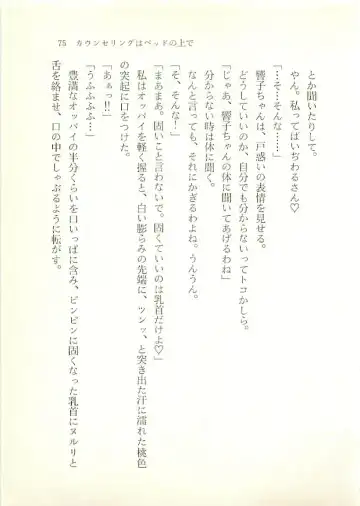 75　カウンセリングはベッドの上で
とか聞いたりして。
やん。私ってばいぢわるさん♡
「そ…そんな……」
響子ちゃんは、戸惑いの表情を見せる。
どうしていいのか、自分でも分からないってトコかしら。
「じゃあ、響子ちゃんの体に聞いてあげるわね」
分からない時は体に聞く。
なんと言っても、それにかぎるわよね。うんうん。
「そ、そんな！」
「まあまあ。固いこと言わないで。固くていいのは乳首だけよ♡」
私はオッパイを軽く握ると、白い膨らみの先端に、ツンッ、と突き出た汗に濡れた桃色
の突起に口をつけた。
「あぁっ!!」
「うふふふふ…」
豊満なオッパイの半分くらいを口いっぱいに含み、ピンピンに固くなった乳首にヌルリと
舌を絡ませ、口の中でしゃぶるように転がす。